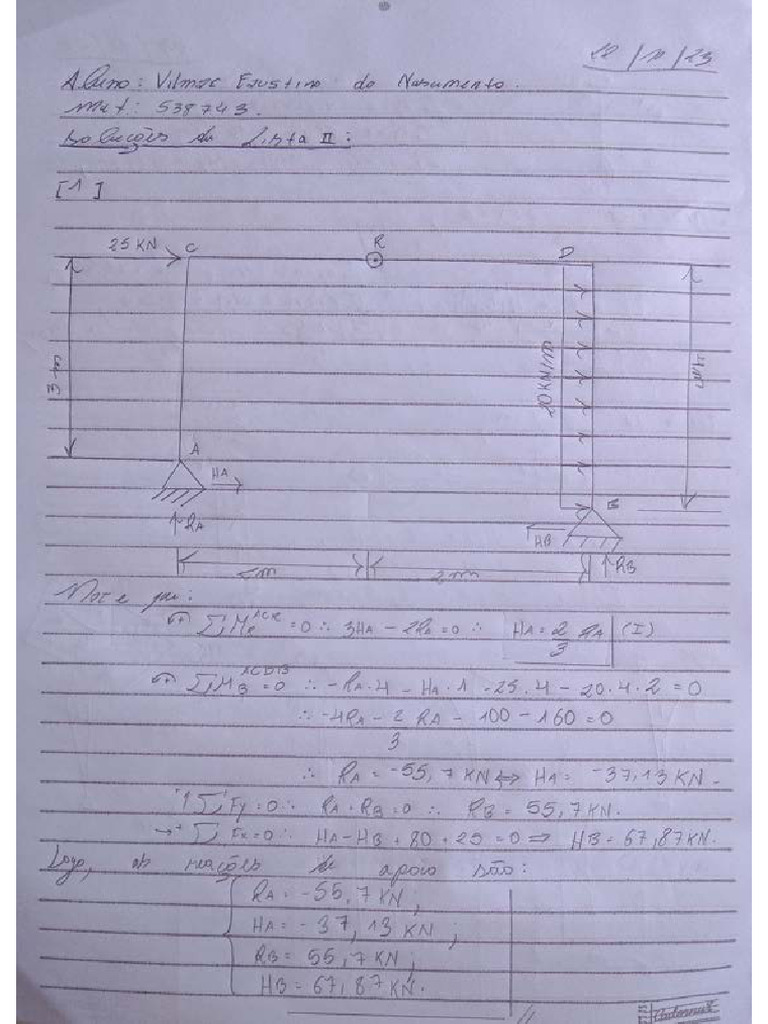 22/11/23
Aluno: Vilmar Faustino do Nascimento.
Mat: 538743.
Soluções da Lista II:
[1]
25 KN C R D
3 m
20 KN/m
4m
A
HA
B
RA
HB
RB
2m 2m
Note que:
∑ M_R^ACR = 0 ∴ 3HA - 2RA = 0 ∴ HA = 2/3 RA (I)
∑ M_B^ACDB = 0 ∴ -RA·4 - HA·1 - 25·4 - 20·4·2 = 0
∴ -4RA - 2/3 RA - 100 - 160 = 0
∴ RA = -55,7 KN ⇔ HA = -37,13 KN.
↑+ ∑ Fy = 0 ∴ RA + RB = 0 ∴ RB = 55,7 KN.
→+ ∑ Fx = 0 ∴ HA - HB + 80 + 25 = 0 ⇒ HB = 67,87 KN.
Logo, as reações de apoio são:
RA = -55,7 KN;
HA = -37,13 KN;
RB = 55,7 KN;
HB = 67,87 KN.